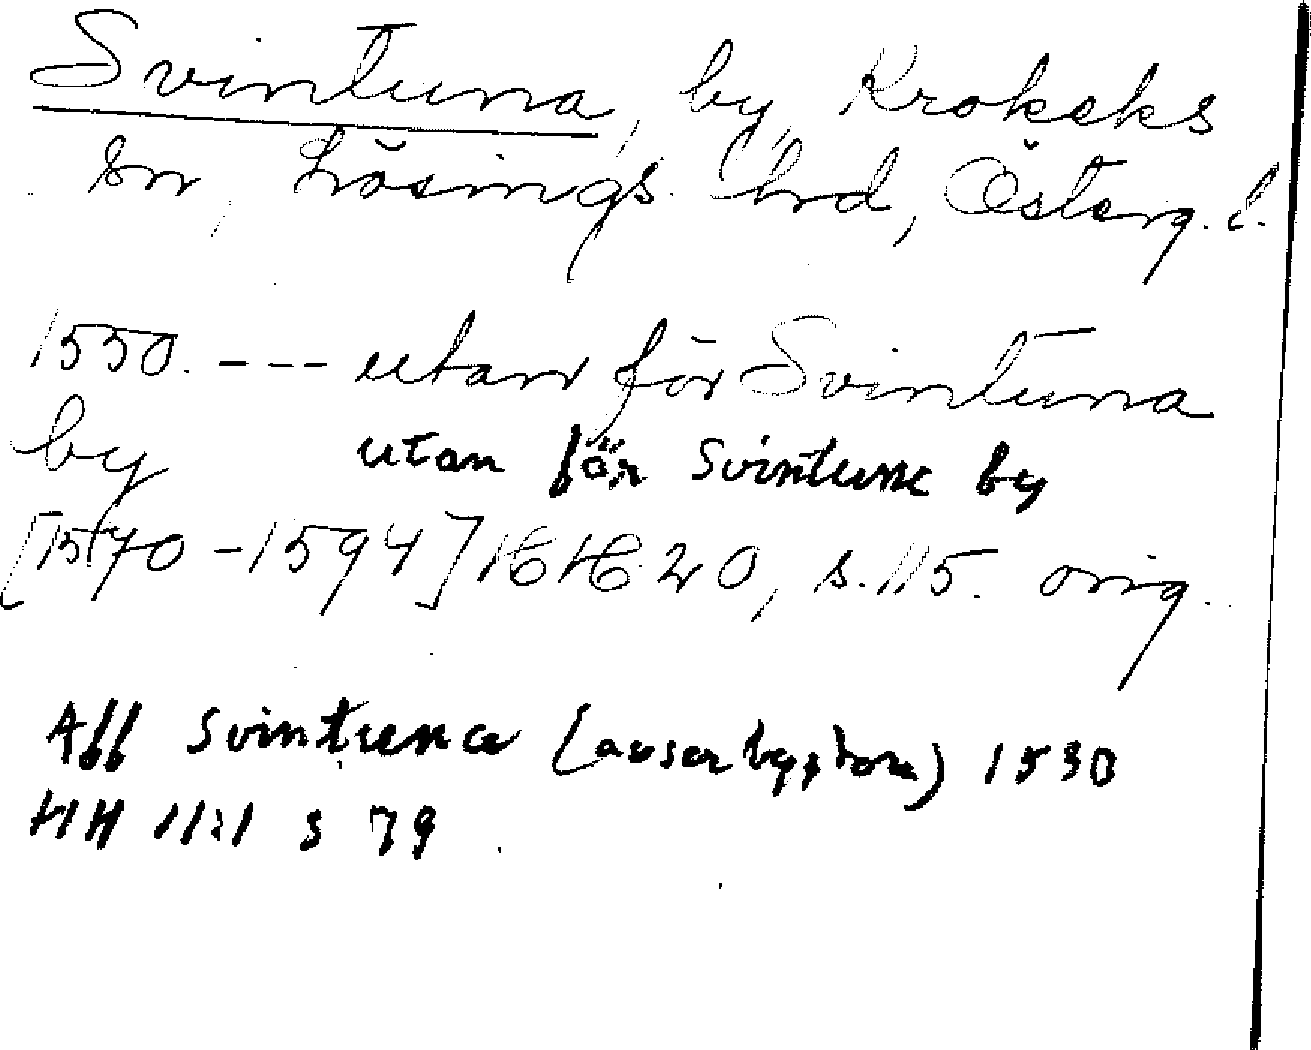 Svintuna, by, Krokeks
sn, Lösings hrd, Österg. l.
1550. --- utan för Svintuna
by
utan för Svintune by
[1570-1594] HH 20, s. 115. orig.
Aff Svintuna 1530
HH 11:1 s 79